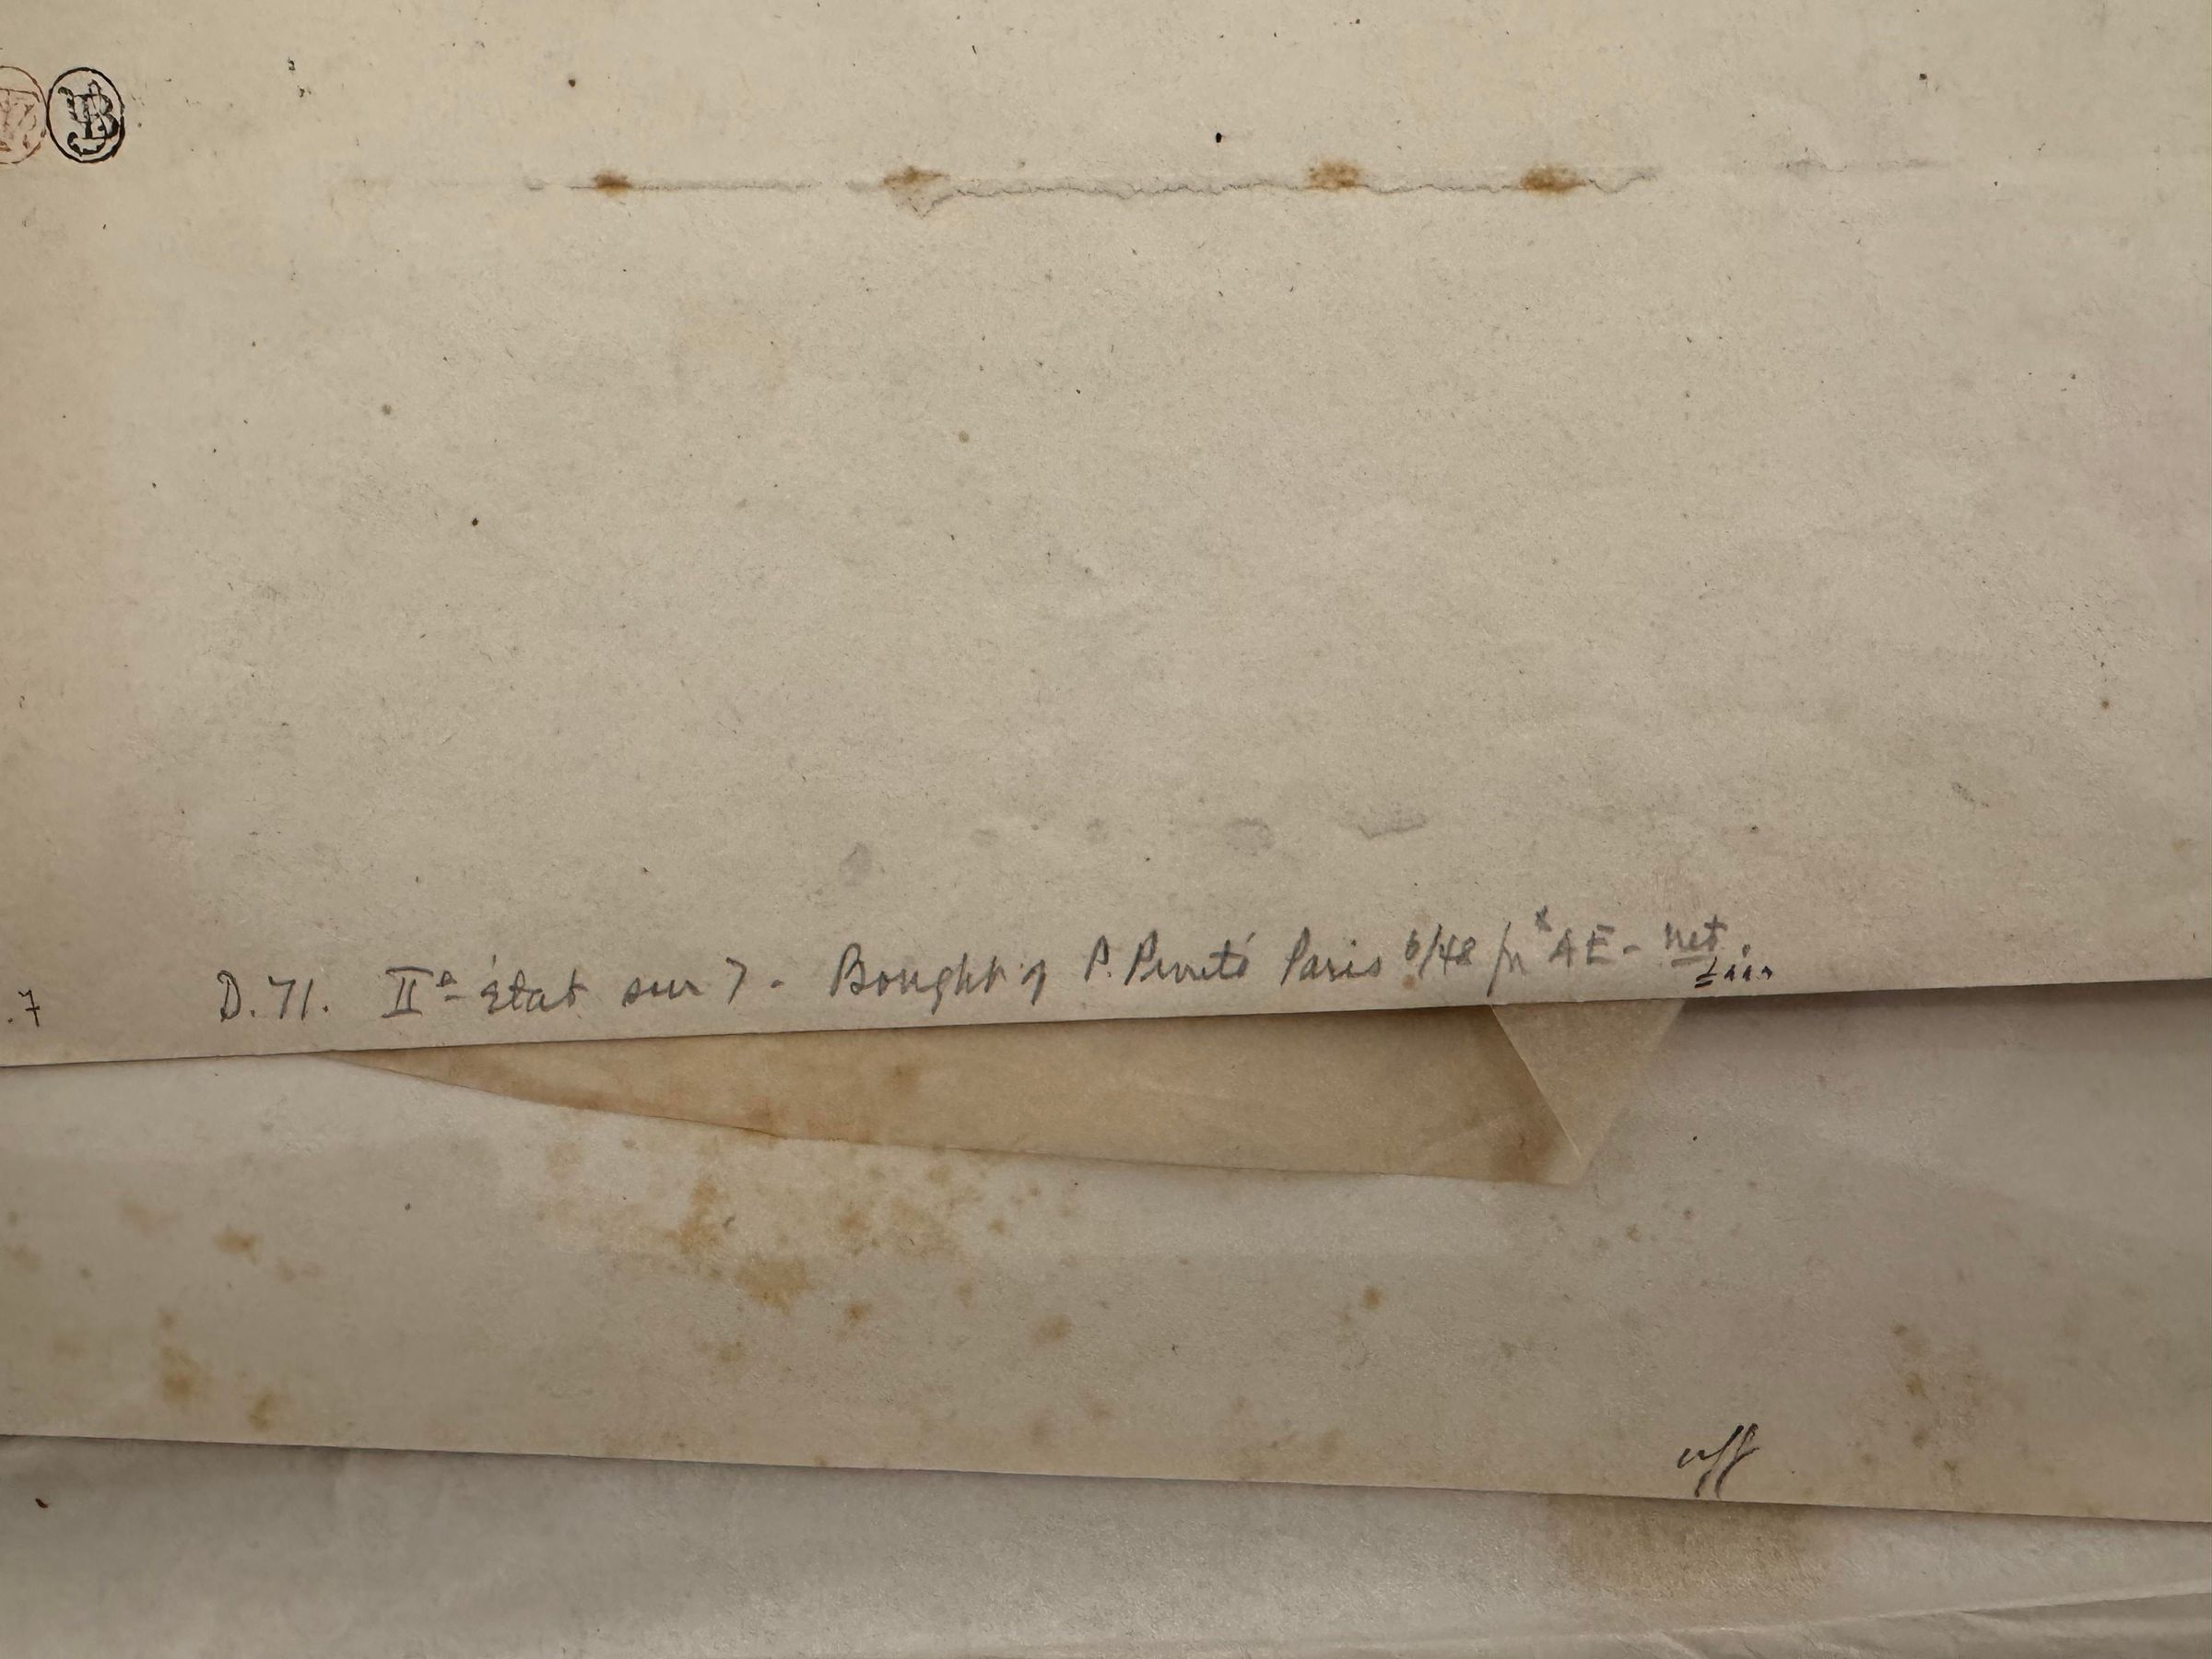 JB
.7 D.71. IIe État sur 7 - Bought of P. Prouté Paris 6/48 AE - net.